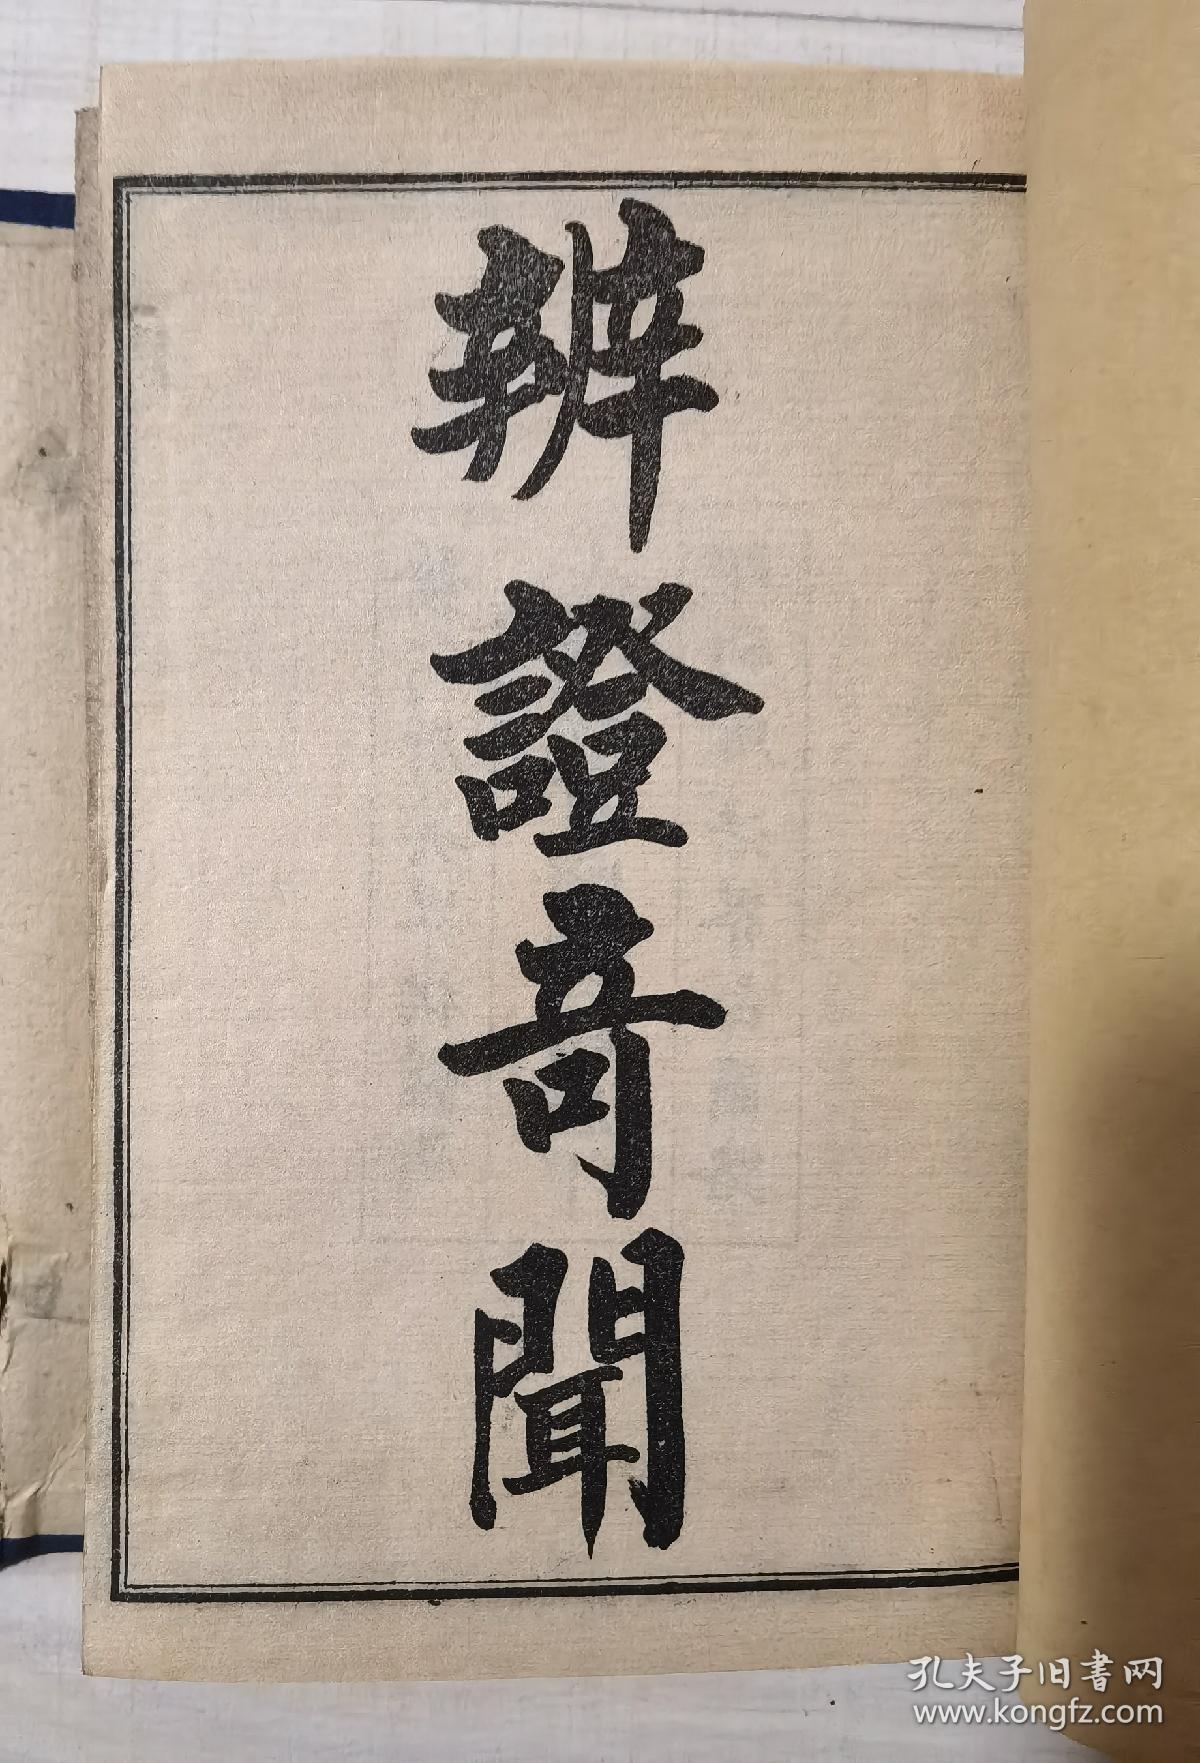 辨證奇聞
孔夫子旧書网
www.kongfz.com